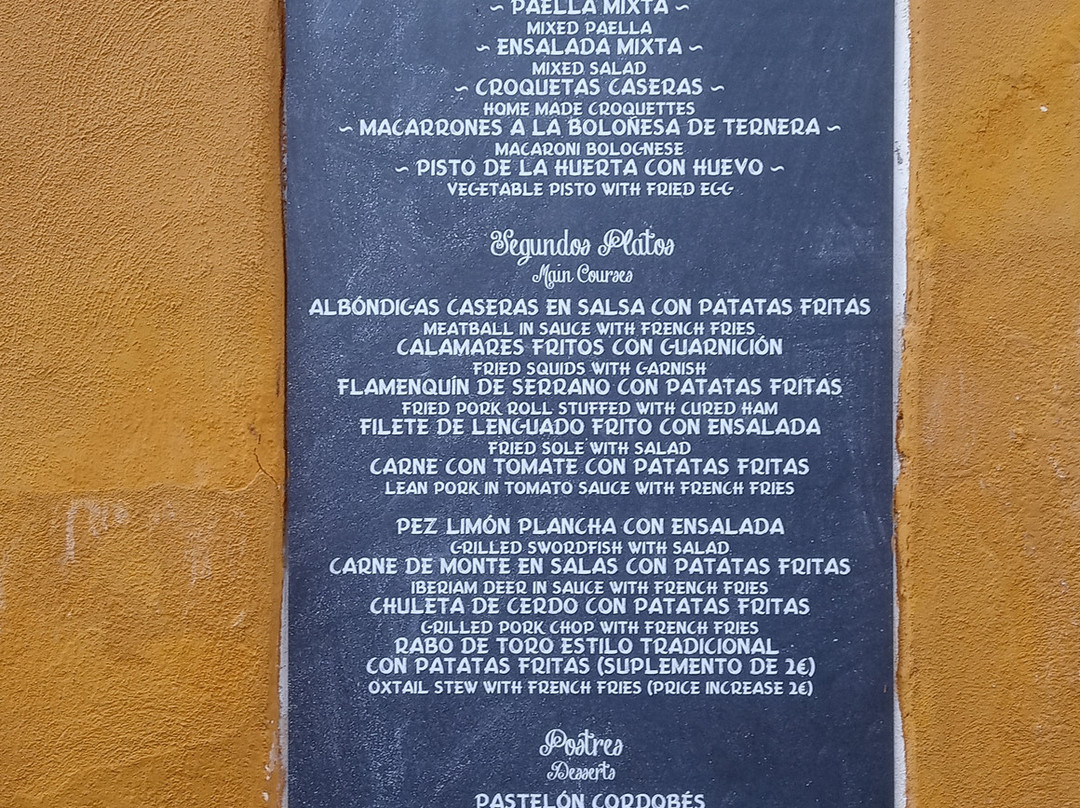 ~ PAELLA MIXTA ~
MIXED PAELLA
~ ENSALADA MIXTA ~
MIXED SALAD
~ CROQUETAS CASERAS ~
HOME MADE CROQUETTES
~ MACARRONES A LA BOLOÑESA DE TERNERA ~
MACARONI BOLOGNESE
~ PISTO DE LA HUERTA CON HUEVO ~
VEGETABLE PISTO WITH FRIED EGG
Segundos Platos
Main Courses
ALBÓNDIGAS CASERAS EN SALSA CON PATATAS FRITAS
MEATBALL IN SAUCE WITH FRENCH FRIES
CALAMARES FRITOS CON GUARNICIÓN
FRIED SQUIDS WITH GARNISH
FLAMENQUÍN DE SERRANO CON PATATAS FRITAS
FRIED PORK ROLL STUFFED WITH CURED HAM
FILETE DE LENGUADO FRITO CON ENSALADA
FRIED SOLE WITH SALAD
CARNE CON TOMATE CON PATATAS FRITAS
LEAN PORK IN TOMATO SAUCE WITH FRENCH FRIES
PEZ LIMÓN PLANCHA CON ENSALADA
GRILLED SWORDFISH WITH SALAD
CARNE DE MONTE EN SALAS CON PATATAS FRITAS
IBERIAM DEER IN SAUCE WITH FRENCH FRIES
CHULETA DE CERDO CON PATATAS FRITAS
GRILLED PORK CHOP WITH FRENCH FRIES
RABO DE TORO ESTILO TRADICIONAL
CON PATATAS FRITAS (SUPLEMENTO DE 2€)
OXTAIL STEW WITH FRENCH FRIES (PRICE INCREASE 2€)
Postres
Desserts
PASTELÓN CORDOBÉS